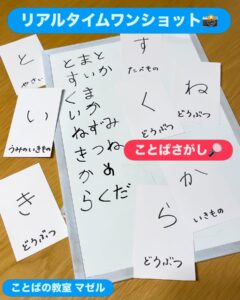 リアルタイムワンショット📸
と
やさい
す
たべもの
い
うみのいきもの
く
どうぶつ
ね
どうぶつ
き
どうぶつ
か
いきもの
ら
どうぶつ
とまと
すいか
くま
いか
ねずみ
きつね
かめ
らくだ
ことばさがし🔎
ことばの教室 マゼル